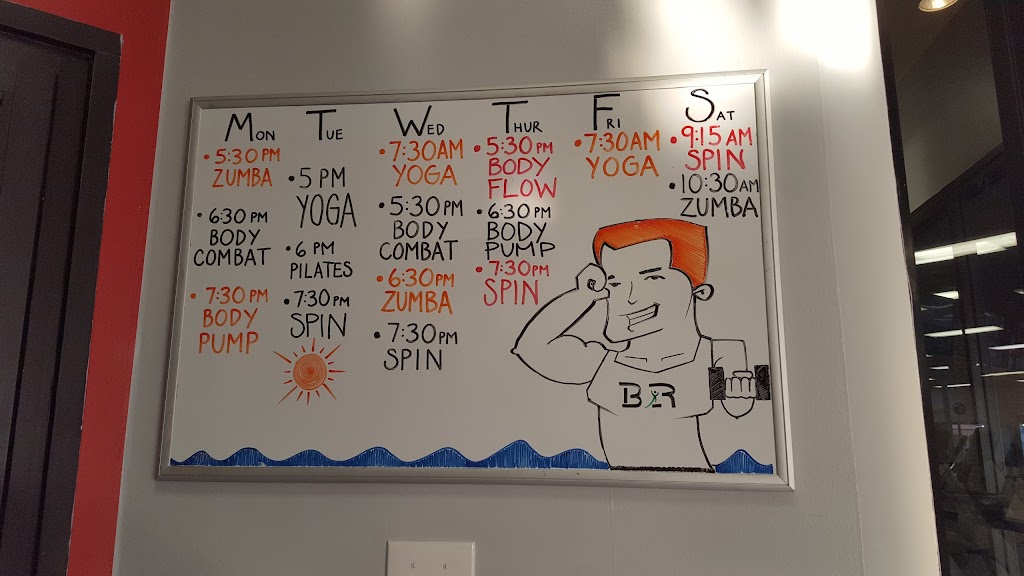 MON
• 5:30 PM
ZUMBA
• 6:30 PM
BODY
COMBAT
• 7:30 PM
BODY
PUMP
TUE
• 5 PM
YOGA
• 6 PM
PILATES
• 7:30 PM
SPIN
WED
• 7:30AM
YOGA
• 5:30 PM
BODY
COMBAT
• 6:30PM
ZUMBA
• 7:30PM
SPIN
THUR
• 5:30 PM
BODY
FLOW
• 6:30 PM
BODY
PUMP
• 7:30 PM
SPIN
FRI
• 7:30AM
YOGA
SAT
• 9:15 AM
SPIN
• 10:30AM
ZUMBA
B R